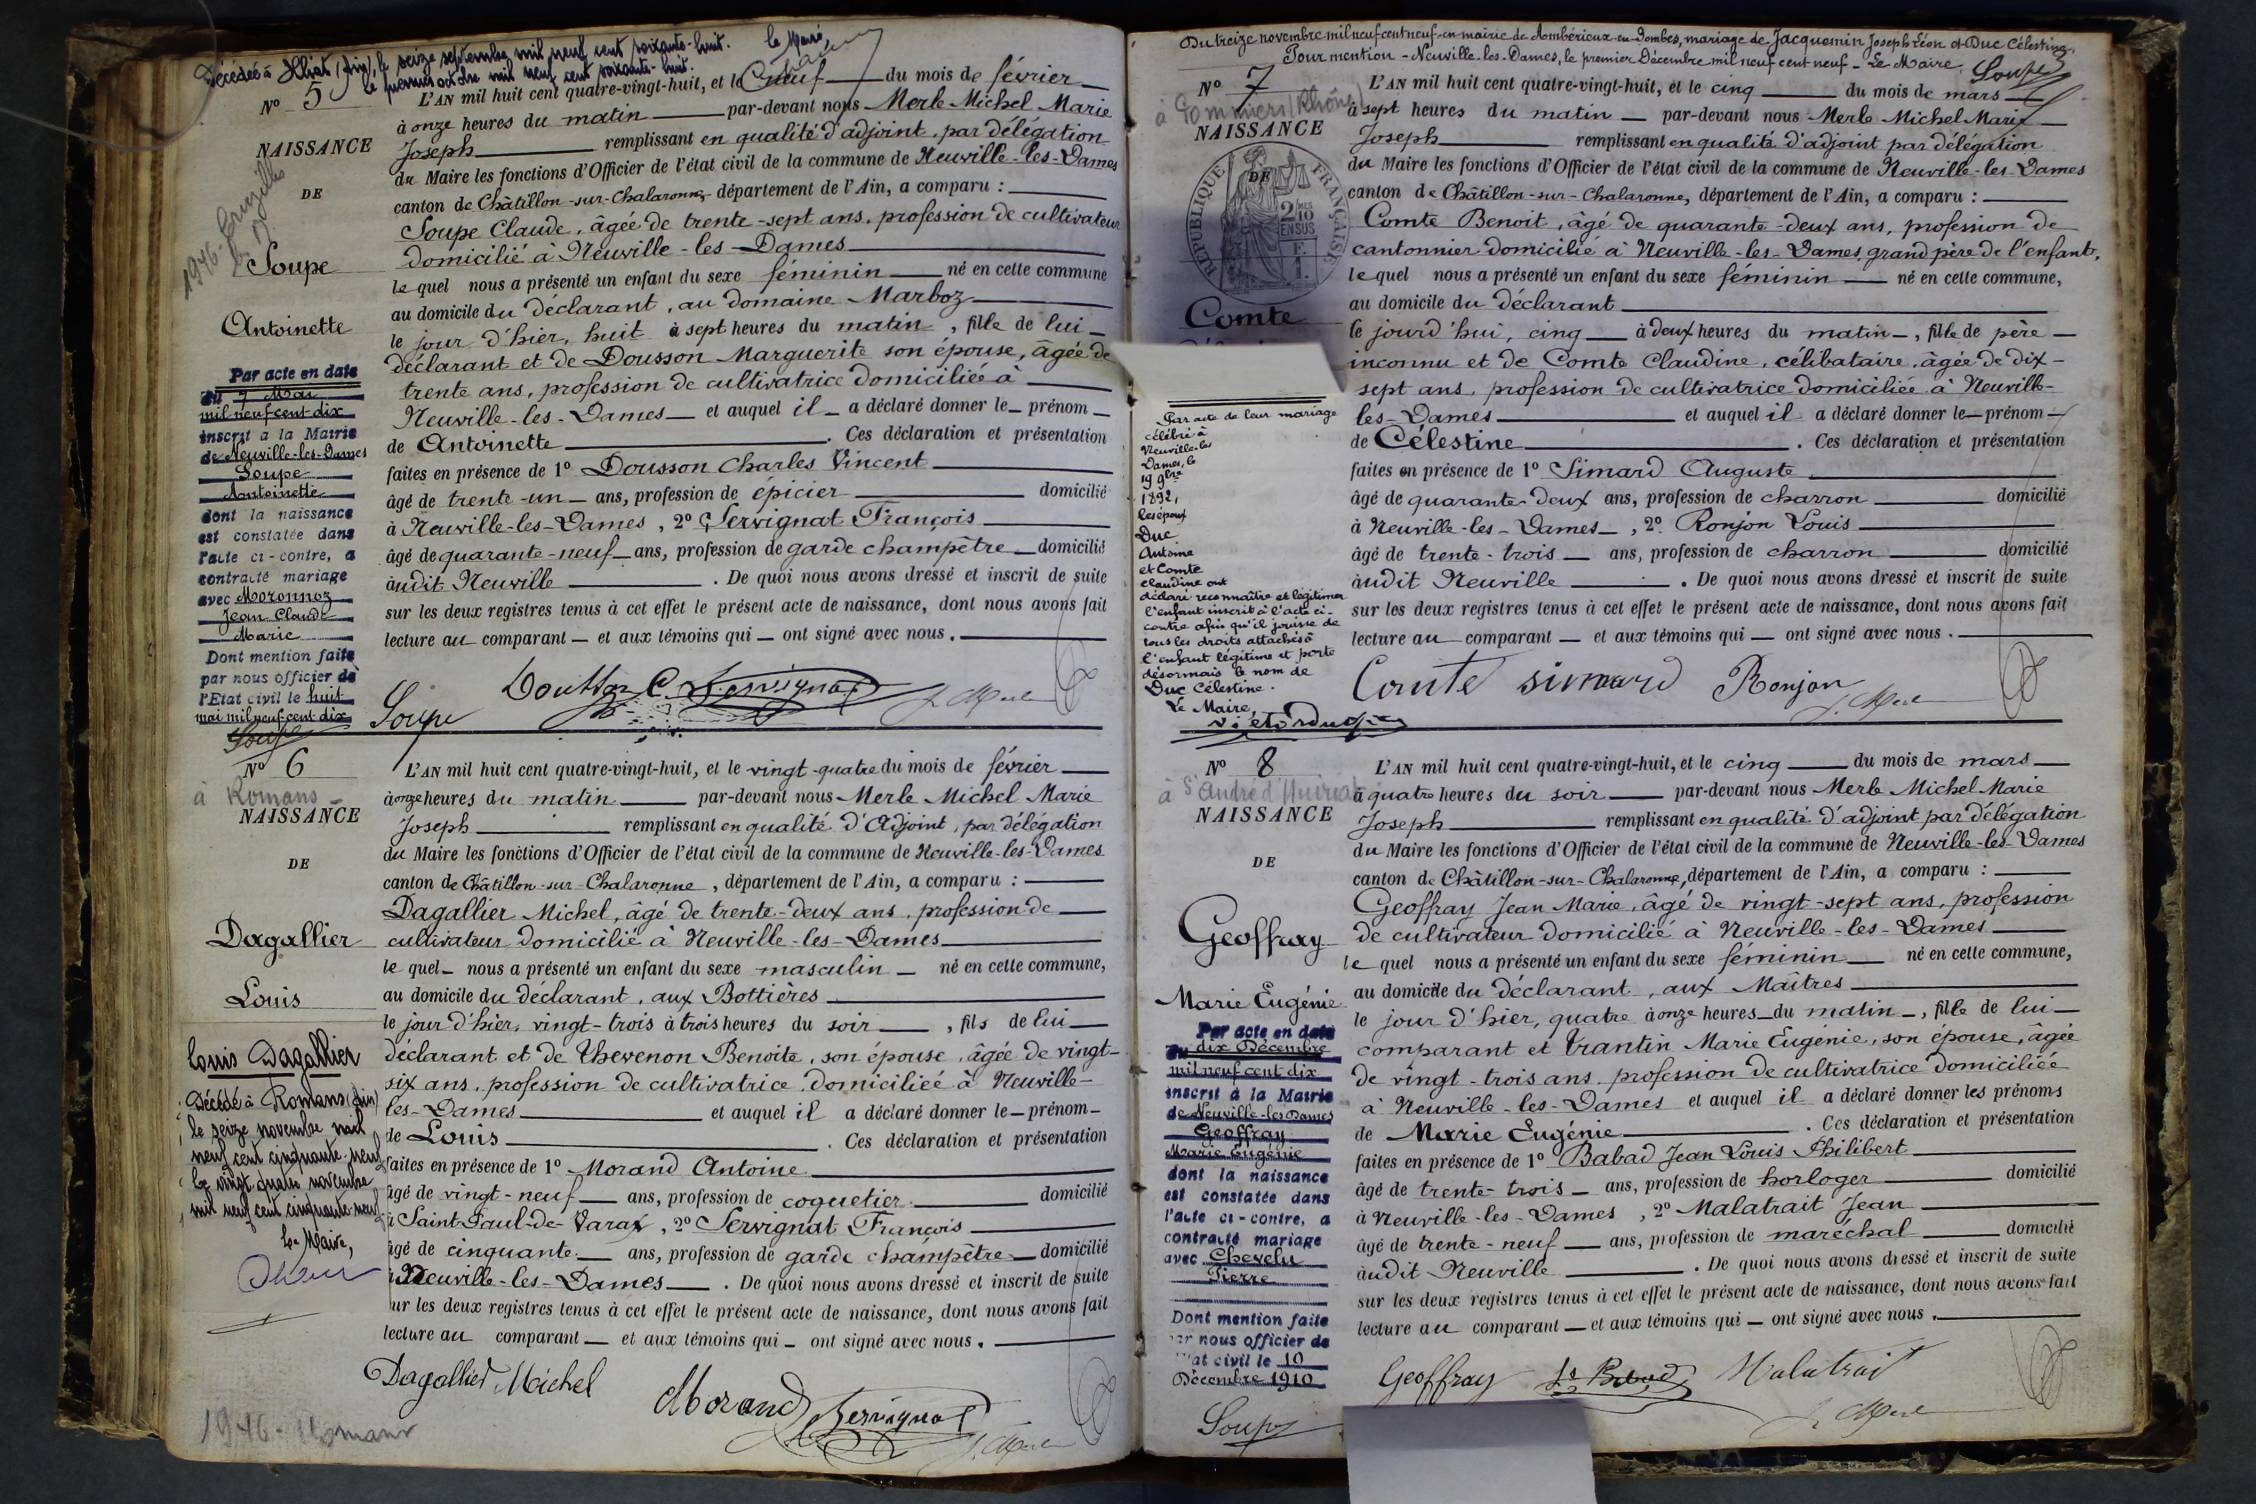 Décédée à Illiat (Ain), le seize septembre mil neuf cent soixante-huit.
le premier octobre mil neuf cent soixante-huit.
le Maire,
Nº 5
1946
NAISSANCE
DE
Soupe
Antoinette
Par acte en date
du 7 Mai
mil neuf cent dix
inscrit à la Mairie
de Neuville-les-Dames
Soupe
Antoinette
dont la naissance
est constatée dans
l'acte ci-contre, a
contracté mariage
avec Moronnoz
Jean Claude
Marie
Dont mention faite
par nous officier de
l'Etat civil le huit
mai mil neuf cent dix
Soupe
L'AN mil huit cent quatre-vingt-huit, et le neuf du mois de février
à onze heures du matin par-devant nous Merle Michel Marie
Joseph remplissant en qualité d'adjoint, par délégation
du Maire les fonctions d'Officier de l'état civil de la commune de Neuville-les-Dames
canton de Châtillon-sur-Chalaronne, département de l'Ain, a comparu :
Soupe Claude, âgée de trente-sept ans, profession de cultivateur
domicilié à Neuville-les-Dames
le quel nous a présenté un enfant du sexe féminin né en cette commune
au domicile du déclarant, au domaine Marboz
le jour d'hier, huit à sept heures du matin, fille de lui
déclarant et de Dousson Marguerite son épouse, âgée de
trente ans, profession de cultivatrice domiciliée à
Neuville-les-Dames et auquel il a déclaré donner le prénom
de Antoinette. Ces déclaration et présentation
faites en présence de 1º Dousson Charles Vincent
âgé de trente-un ans, profession de épicier domicilié
à Neuville-les-Dames, 2º Servignat François
âgé de quarante-neuf ans, profession de garde champêtre domicilié
àudit Neuville. De quoi nous avons dressé et inscrit de suite
sur les deux registres tenus à cet effet le présent acte de naissance, dont nous avons fait
lecture au comparant et aux témoins qui ont signé avec nous.
Soupe Dousson C. Servignat J. Merle
Nº 6
à Romans
NAISSANCE
DE
Dagallier
Louis
Louis Dagallier
Décédé à Romans (Ain)
le seize novembre mil
neuf cent cinquante-neuf
le vingt quatre novembre
mil neuf cent cinquante-neuf
le Maire,
1946 - Romans
L'AN mil huit cent quatre-vingt-huit, et le vingt-quatre du mois de février
à onze heures du matin par-devant nous Merle Michel Marie
Joseph remplissant en qualité d'Adjoint, par délégation
du Maire les fonctions d'Officier de l'état civil de la commune de Neuville-les-Dames
canton de Châtillon-sur-Chalaronne, département de l'Ain, a comparu :
Dagallier Michel, âgé de trente-deux ans, profession de
cultivateur domicilié à Neuville-les-Dames
le quel nous a présenté un enfant du sexe masculin né en cette commune,
au domicile du déclarant, aux Bottières
le jour d'hier, vingt-trois à trois heures du soir, fils de lui
déclarant et de Thevenon Benoite, son épouse, âgée de vingt-
six ans, profession de cultivatrice domiciliée à Neuville-
les-Dames et auquel il a déclaré donner le prénom
de Louis. Ces déclaration et présentation
faites en présence de 1º Morand Antoine
âgé de vingt-neuf ans, profession de coquetier domicilié
à Saint-Paul-de-Varax, 2º Servignat François
âgé de cinquante ans, profession de garde champêtre domicilié
à Neuville-les-Dames. De quoi nous avons dressé et inscrit de suite
sur les deux registres tenus à cet effet le présent acte de naissance, dont nous avons fait
lecture au comparant et aux témoins qui ont signé avec nous.
Dagallier Michel Morand Servignat J. Merle
Du treize novembre mil neuf cent neuf en mairie de Ambérieux-en-Dombes, mariage de Jacquemin Joseph Léon et Duc Célestine.
Pour mention - Neuville-les-Dames, le premier Décembre mil neuf cent neuf - Le Maire, Soupe
Nº 7
à Pommiers (Rhône)
NAISSANCE
DE
RÉPUBLIQUE FRANÇAISE
2/10
EN SUS
Comte
Par acte de leur mariage
célébré à
Neuville-les
Dames, le
19 9bre
1892,
les époux
Duc
Antoine
et Comte
Claudine ont
déclaré reconnaître et légitimer
l'enfant inscrit à l'acte ci-
contre afin qu'il jouisse de
tous les droits attachés à
l'enfant légitime et porte
désormais le nom de
Duc Célestine.
Le Maire,
L'AN mil huit cent quatre-vingt-huit, et le cinq du mois de mars
à sept heures du matin par-devant nous Merle Michel Marie
Joseph remplissant en qualité d'adjoint par délégation
du Maire les fonctions d'Officier de l'état civil de la commune de Neuville-les-Dames
canton de Châtillon-sur-Chalaronne, département de l'Ain, a comparu :
Comte Benoit, âgé de quarante-deux ans, profession de
cantonnier domicilié à Neuville-les-Dames, grand père de l'enfant,
le quel nous a présenté un enfant du sexe féminin né en cette commune,
au domicile du déclarant
le jourd'hui, cinq à deux heures du matin, fille de père
inconnu et de Comte Claudine, célibataire, âgée de dix-
sept ans, profession de cultivatrice domiciliée à Neuville-
les-Dames et auquel il a déclaré donner le prénom
de Célestine. Ces déclaration et présentation
faites en présence de 1º Simard Auguste
âgé de quarante-deux ans, profession de charron domicilié
à Neuville-les-Dames, 2º Ronjon Louis
âgé de trente-trois ans, profession de charron domicilié
àudit Neuville. De quoi nous avons dressé et inscrit de suite
sur les deux registres tenus à cet effet le présent acte de naissance, dont nous avons fait
lecture au comparant et aux témoins qui ont signé avec nous.
Comte Simard Ronjon J. Merle
Nº 8
à St André d'Huiriat
NAISSANCE
DE
Geoffray
Marie Eugénie
Par acte en date
du dix Décembre
mil neuf cent dix
inscrit à la Mairie
de Neuville-les-Dames
Geoffray
Marie Eugénie
dont la naissance
est constatée dans
l'acte ci-contre, a
contracté mariage
avec Chevelu
Pierre
Dont mention faite
par nous officier de
l'Etat civil le 10
Décembre 1910
Soupe
L'AN mil huit cent quatre-vingt-huit, et le cinq du mois de mars
à quatre heures du soir par-devant nous Merle Michel Marie
Joseph remplissant en qualité d'adjoint par délégation
du Maire les fonctions d'Officier de l'état civil de la commune de Neuville-les-Dames
canton de Châtillon-sur-Chalaronne, département de l'Ain, a comparu :
Geoffray Jean Marie, âgé de vingt-sept ans, profession
de cultivateur domicilié à Neuville-les-Dames
le quel nous a présenté un enfant du sexe féminin né en cette commune,
au domicile du déclarant, aux Maîtres
le jour d'hier, quatre à onze heures du matin, fille de lui
comparant et Trantin Marie Eugénie, son épouse, âgée
de vingt-trois ans, profession de cultivatrice domiciliée
à Neuville-les-Dames et auquel il a déclaré donner les prénoms
de Marie Eugénie. Ces déclaration et présentation
faites en présence de 1º Babad Jean Louis Philibert
âgé de trente-trois ans, profession de horloger domicilié
à Neuville-les-Dames, 2º Malatrait Jean
âgé de trente-neuf ans, profession de maréchal domicilié
àudit Neuville. De quoi nous avons dressé et inscrit de suite
sur les deux registres tenus à cet effet le présent acte de naissance, dont nous avons fait
lecture au comparant et aux témoins qui ont signé avec nous.
Geoffray Babad Malatrait J. Merle